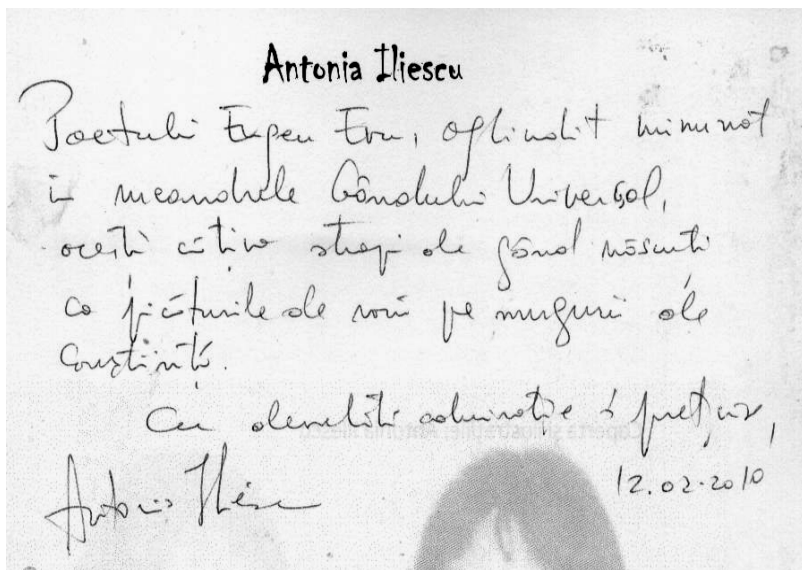 Antonia Iliescu
Poetului Eugen Evu, oglindit minunat
în meandrele Gândului Universal,
acești câțiva stropi de gând născuți
ca picăturile de rouă pe mugurii de
Conștiință.
Cu deosebită admirație și prețuire,
12.02.2010
Antonia Iliescu